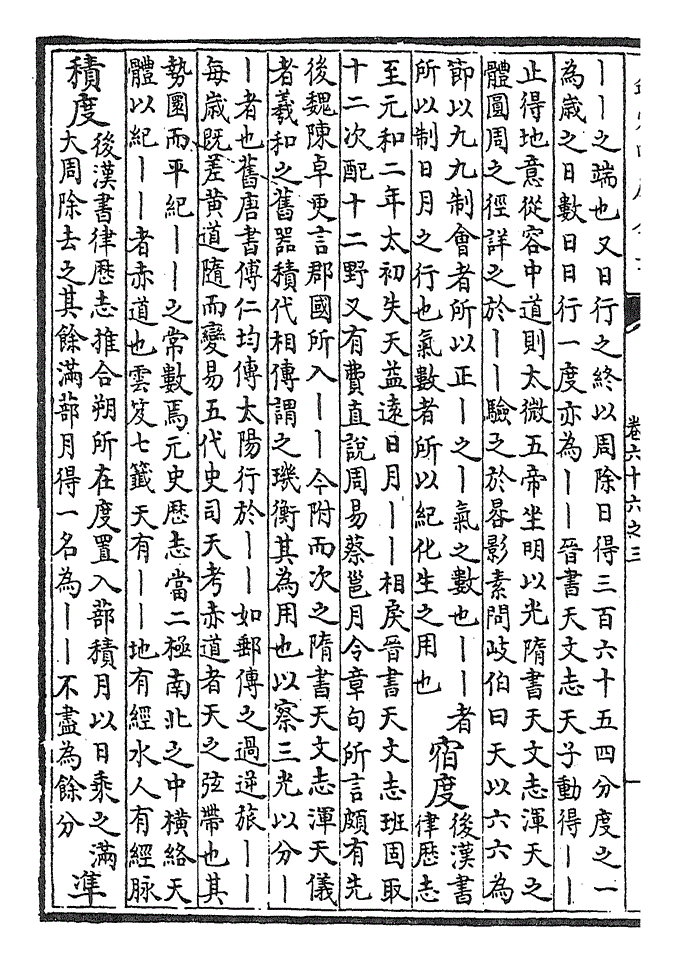 卷六十六之三
一
丨丨之端也又日行之終以周除日得三百六十五四分度之一
為歲之日數日日行一度亦為丨丨晉書天文志天子動得丨丨
止得地意從容中道則太微五帝坐明以光隋書天文志渾天之
體圓周之徑詳之於丨丨驗之於晷影素問岐伯曰天以六六為
節以九九制會者所以正丨之丨氣之數也丨丨者
所以制日月之行也氣數者所以紀化生之用也
宿度
後漢書
律歴志
至元和二年太初失天益遠日月丨丨相戾晉書天文志班固取
十二次配十二野又有費直說周易蔡邕月令章句所言頗有先
後魏陳卓更言郡國所入丨丨今附而次之隋書天文志渾天儀
者羲和之舊器積代相傳謂之璣衡其為用也以察三光以分丨
丨者也舊唐書傅仁均傳太陽行於丨丨如郵傳之過逆旅丨丨
每歲既差黄道隨而變易五代史司天考赤道者天之弦帶也其
勢圜而平紀丨丨之常數焉元史歴志當二極南北之中橫絡天
體以紀丨丨者赤道也雲笈七籖天有丨丨地有經水人有經脉
積度
後漢書律歴志推合朔所在度置入蔀積月以日乘之滿
大周除去之其餘滿蔀月得一名為丨丨不盡為餘分
準